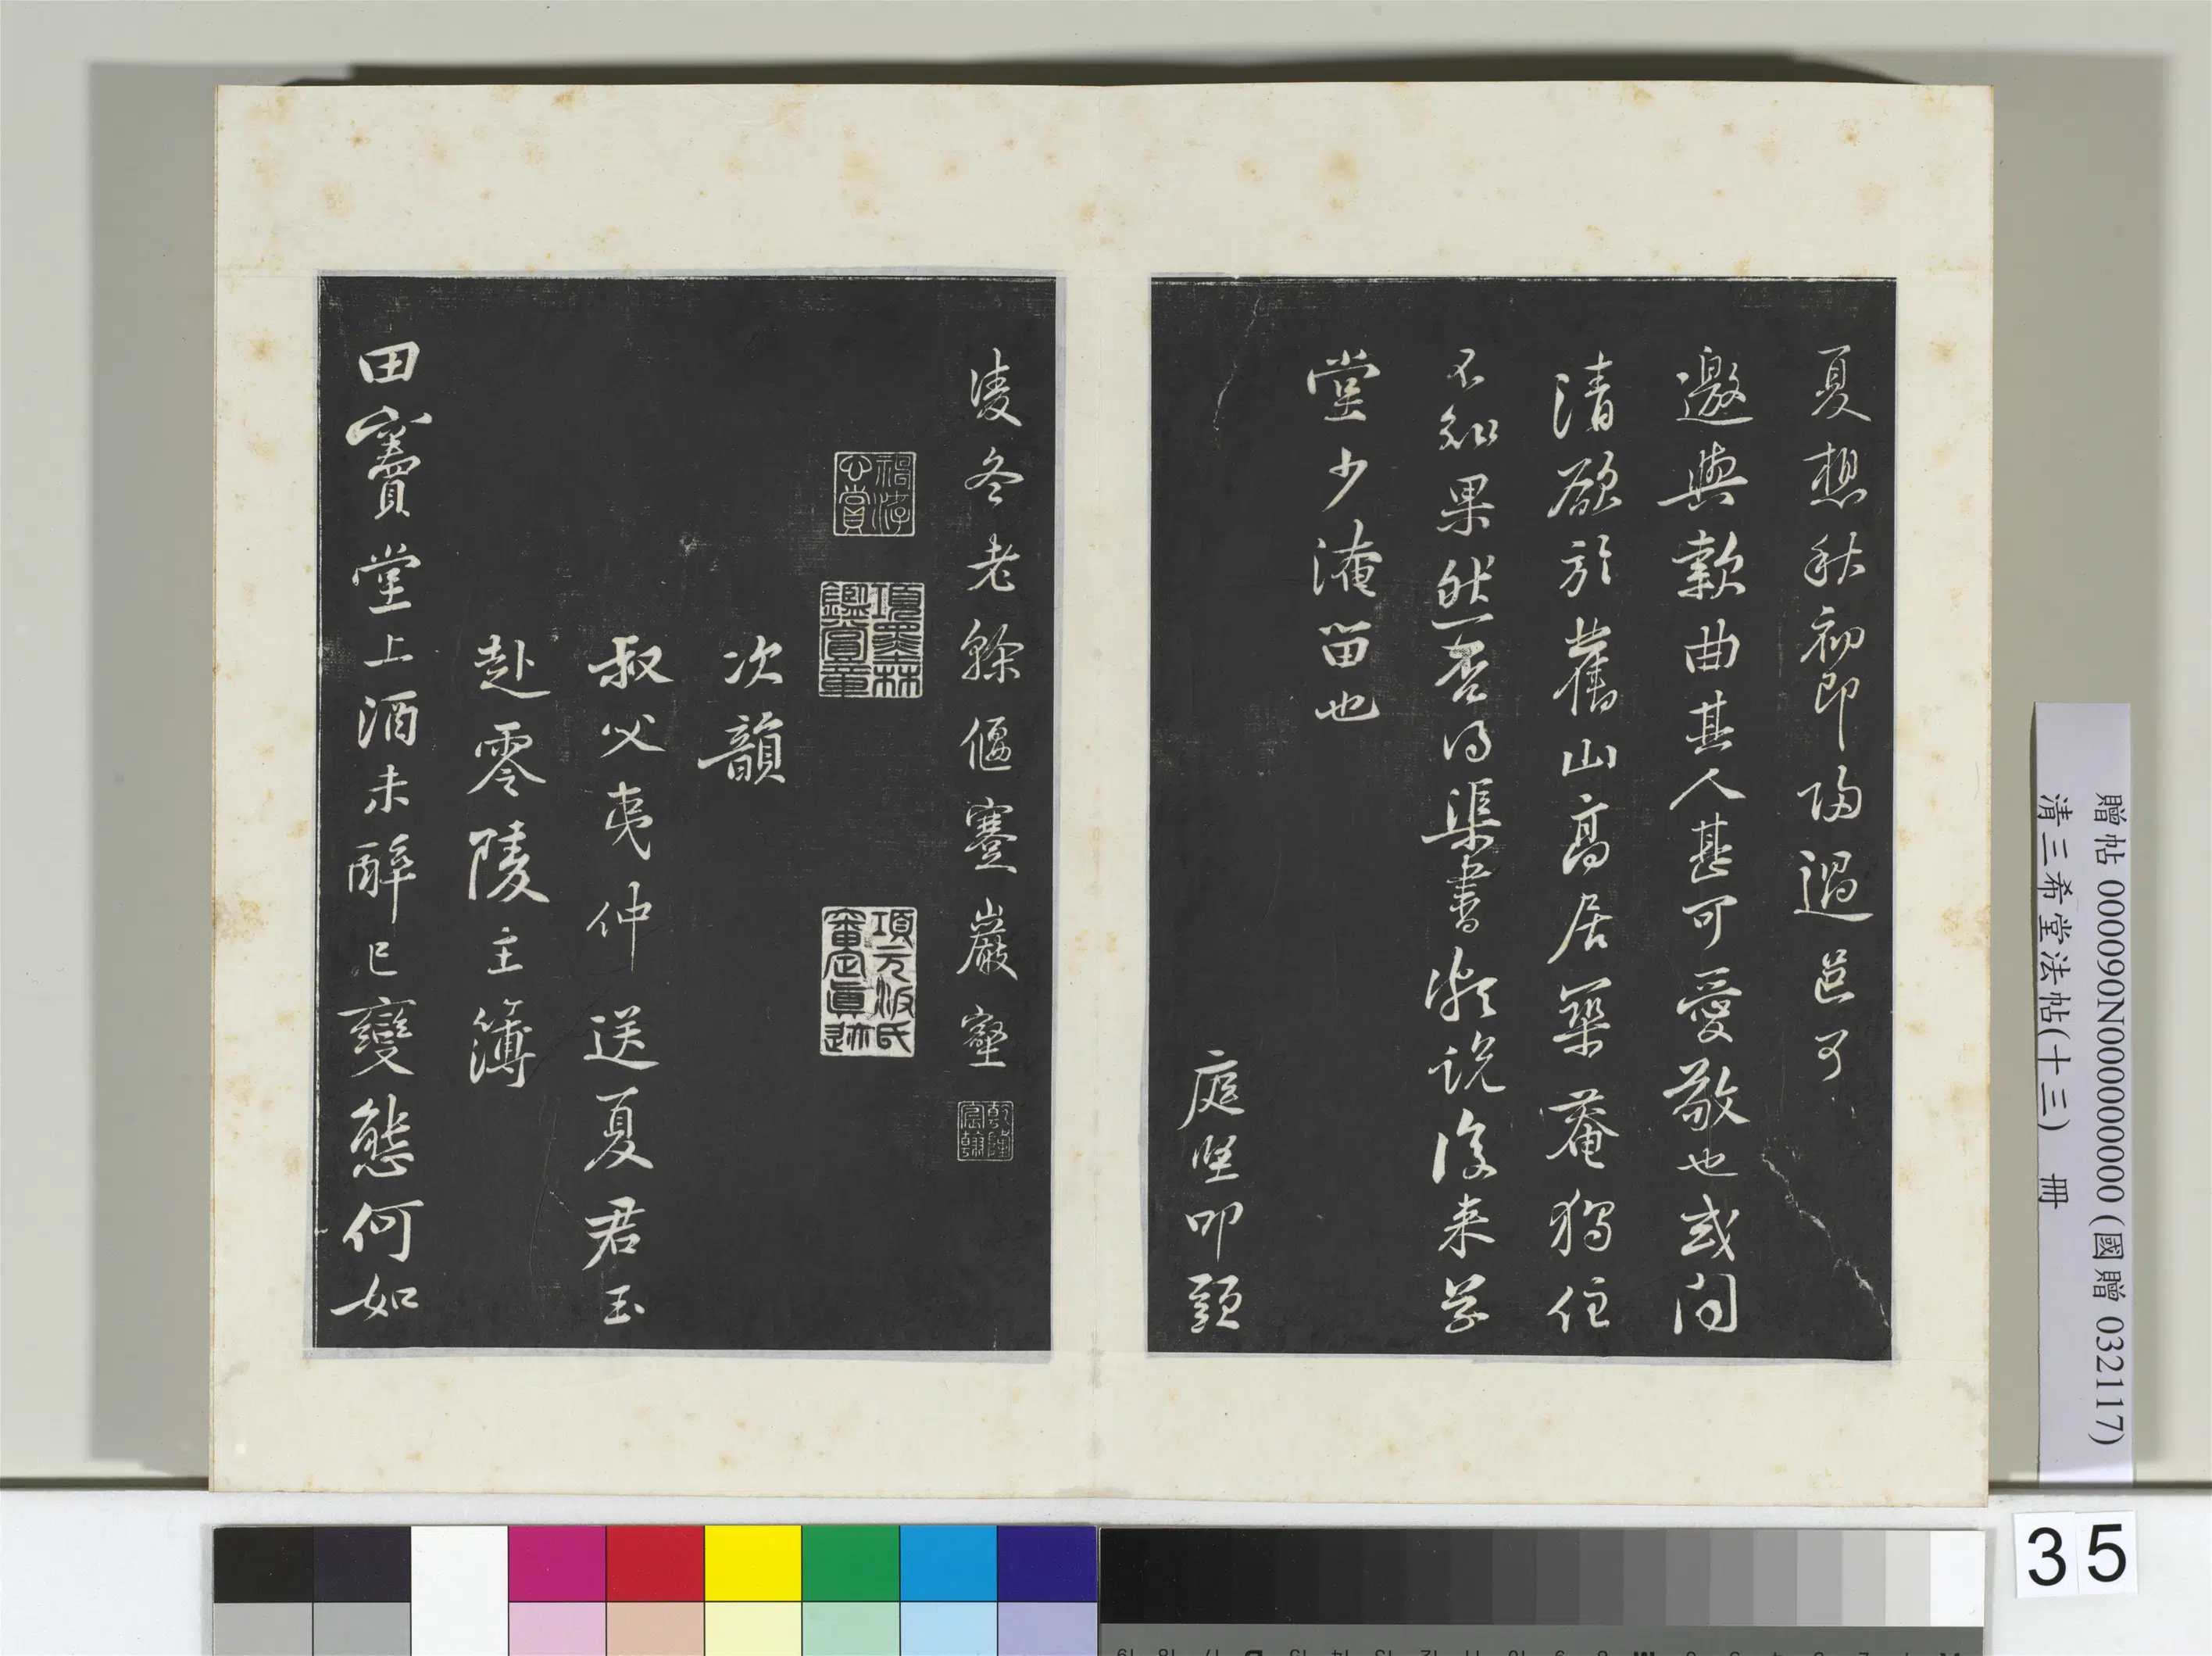 夏想秋初即歸過邑可
邀與款曲其人甚可愛敬也或問
清欲於舊山高居築菴獨住
不知果然否得渠書頗說後來草
堂少淹留也
庭堅叩頭
淩冬老榦偃蹇巖壑
乾隆宸翰
公賞
項墨林鑑賞章
項元汴氏審定真迹
次韻
叔父夷仲送夏君玉
赴零陵主簿
田竇堂上酒未醉已變態何如
贈帖 000090N000000000 (國贈 032117)
清三希堂法帖(十三) 冊
35